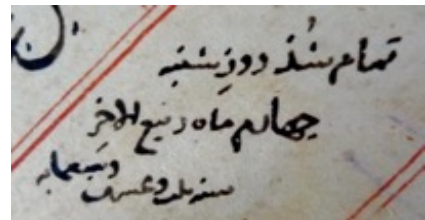 تمام شُد روز شنبه
چهارم ماه ربیع الاخرِ
سنه ثلث وعشرین وتسعمایه